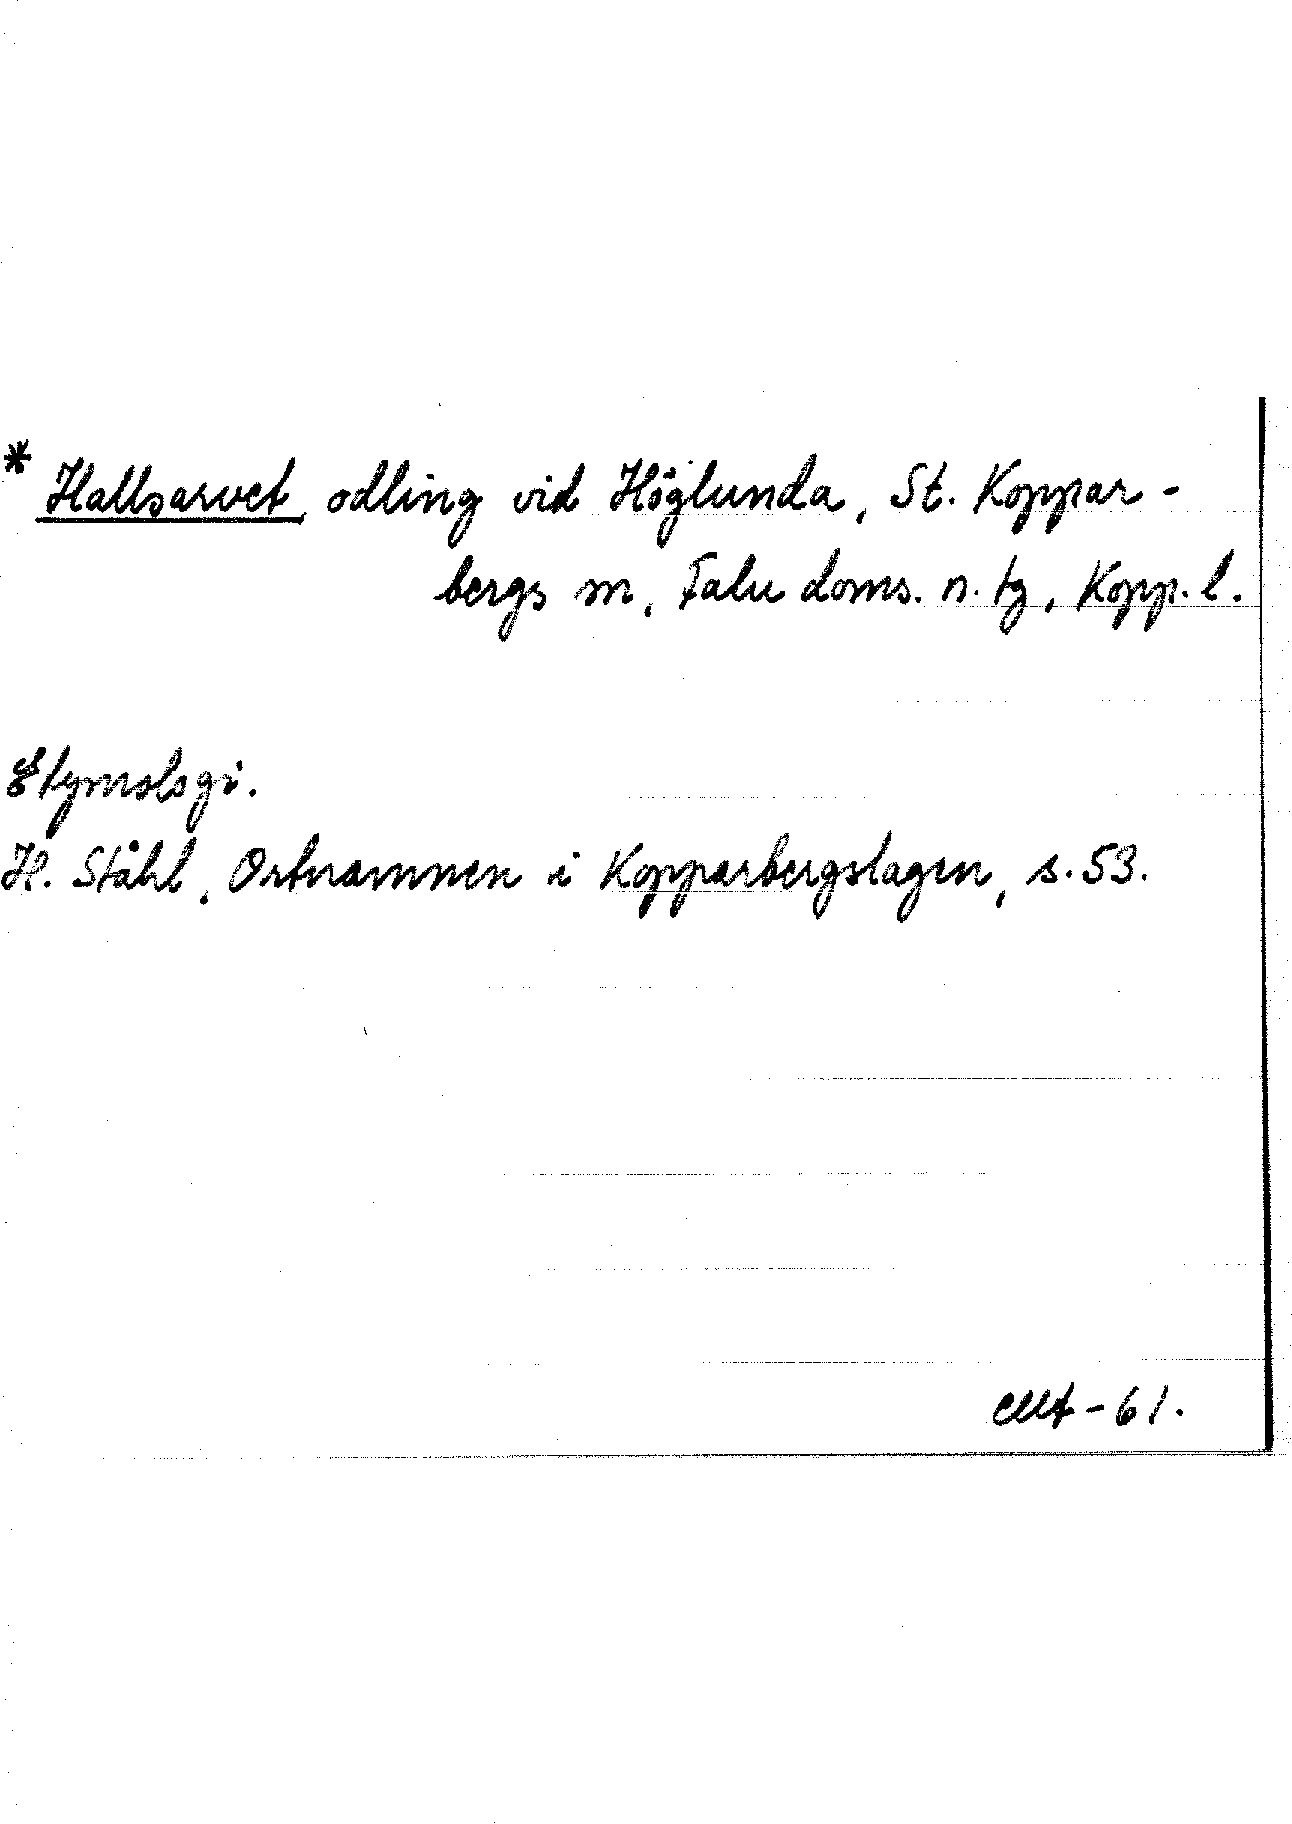 * Hallsarvet, odling vid Höglunda, St. Koppar-
bergs sn, Falu doms. n. tg, Kopp. l.
Etymologi.
H. Ståhl, Ortnamnen i Kopparbergslagen, s. 53.
-61.